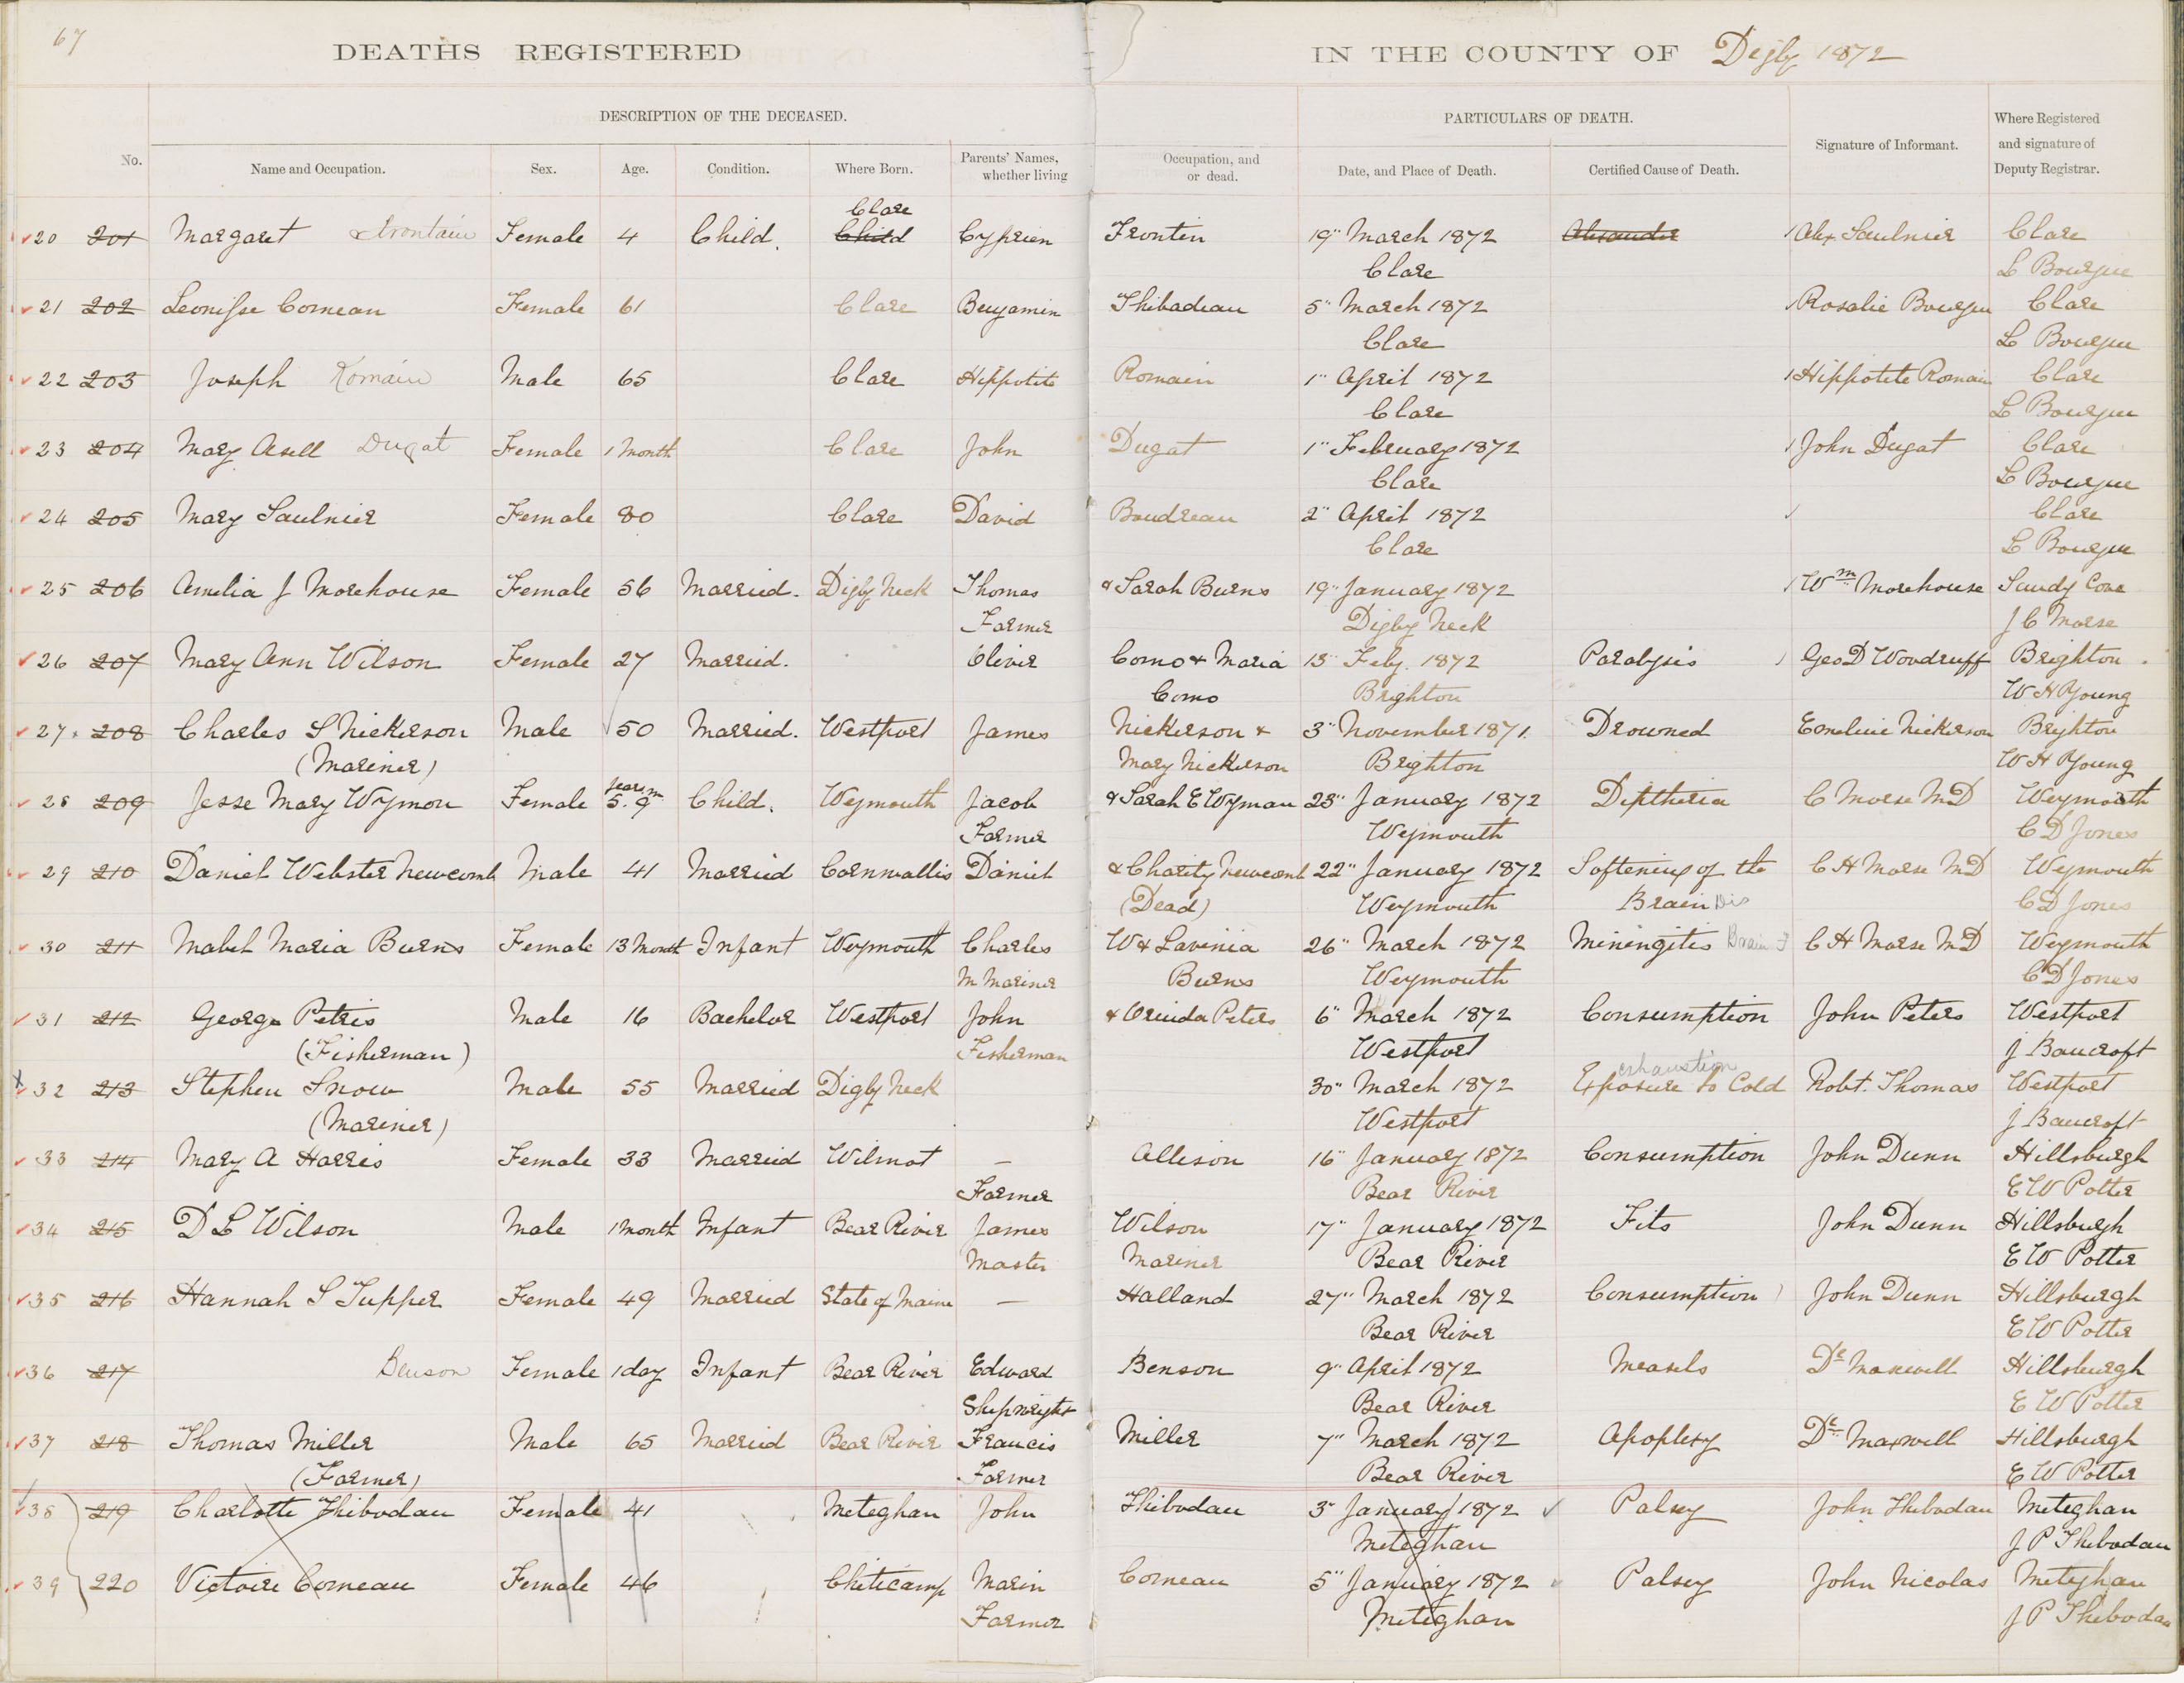 67
DEATHS REGISTERED IN THE COUNTY OF Digby 1872
DESCRIPTION OF THE DECEASED. PARTICULARS OF DEATH.
No. Name and Occupation. Sex. Age. Condition. Where Born. Parents' Names, whether living Occupation, and or dead. Date, and Place of Death. Certified Cause of Death. Signature of Informant. Where Registered and signature of Deputy Registrar.
Clare
20 201 Margaret Frontain Female 4 Child. Child Cyprien Frontin 19" March 1872 Alexander Alex Saulnier Clare
Clare L Bourque
21 202 Leonisse Comeau Female 61 Clare Benjamin Thibadeau 5" March 1872 Rosalie Bourque Clare
Clare L Bourque
22 203 Joseph Romain Male 65 Clare Hippotite Romain 1" April 1872 Hippotite Romain Clare
Clare L Bourque
23 204 Mary Asell Dugat Female 1 Month Clare John Dugat 1" February 1872 John Dugat Clare
Clare L Bourque
24 205 Mary Saulnier Female 80 Clare David Boudreau 2" April 1872 Clare
Clare L Bourque
25 206 Amelia J Morehouse Female 56 Married. Digby Neck Thomas & Sarah Burns 19" January 1872 Wm Morehouse Sandy Cove
Farmer Digby Neck J C Morse
26 207 Mary Ann Wilson Female 27 Married. Olivir Como & Maria 13" Feby. 1872 Paralysis Geo D Woodruff Brighton
Como Brighton W H Young
27 208 Charles S Nickerson Male 50 Married. Westport James Nickerson & 3" November 1871. Drowned Emeline Nickerson Brighton
(Mariner) Mary Nickerson Brighton W H Young
years m
28 209 Jesse Mary Wymon Female 5. 9 Child. Weymouth Jacob & Sarah E Wyman 23" January 1872 Diptheria C Morse MD Weymouth
Farmer Weymouth C D Jones
29 210 Daniel Webster Newcomb Male 41 Married Cornwallis Daniel & Charity Newcomb 22" January 1872 Softening of the C H Morse MD Weymouth
(Dead) Weymouth Brain Dis C D Jones
30 211 Mabel Maria Burns Female 13 Month Infant Weymouth Charles W & Lavinia 26" March 1872 Miningitis Brain F C H Morse MD Weymouth
M Mariner Burns Weymouth C D Jones
31 212 George Petris Male 16 Bachelor Westport John & Orinda Peters 6" March 1872 Consumption John Peters Westport
(Fisherman) Fisherman Westport J Bancroft
exhaustion
32 213 Stephen Snow Male 55 Married Digby Neck 30" March 1872 Exposure to Cold Robt. Thomas Westport
(Mariner) Westport J Bancroft
33 214 Mary A Harris Female 33 Married Wilmot — Allison 16" January 1872 Consumption John Dunn Hillsburgh
Farmer Bear River E W Potter
34 215 D L Wilson Male 1 Month Infant Bear River James Wilson 17" January 1872 Fits John Dunn Hillsburgh
Master Mariner Bear River E W Potter
35 216 Hannah S Tupper Female 49 Married State of Maine — Halland 27" March 1872 Consumption John Dunn Hillsburgh
Bear River E W Potter
36 217 Benson Female 1 day Infant Bear River Edward Benson 9" April 1872 Measels Dr Maxwell Hillsburgh
Shipwright Bear River E W Potter
37 218 Thomas Miller Male 65 Married Bear River Francis Miller 7" March 1872 Apoplexy Dr Maxwell Hillsburgh
(Farmer) Farmer Bear River E W Potter
38 219 Charlotte Thibodau Female 41 Meteghan John Thibodau 3" January 1872 Palsey John Thibodau Meteghan
Meteghan J P Thibodau
39 220 Victoire Comeau Female 46 Cheticamp Marin Comeau 5" January 1872 Palsey John Nicolas Meteghan
Farmer Meteghan J P Thibodau